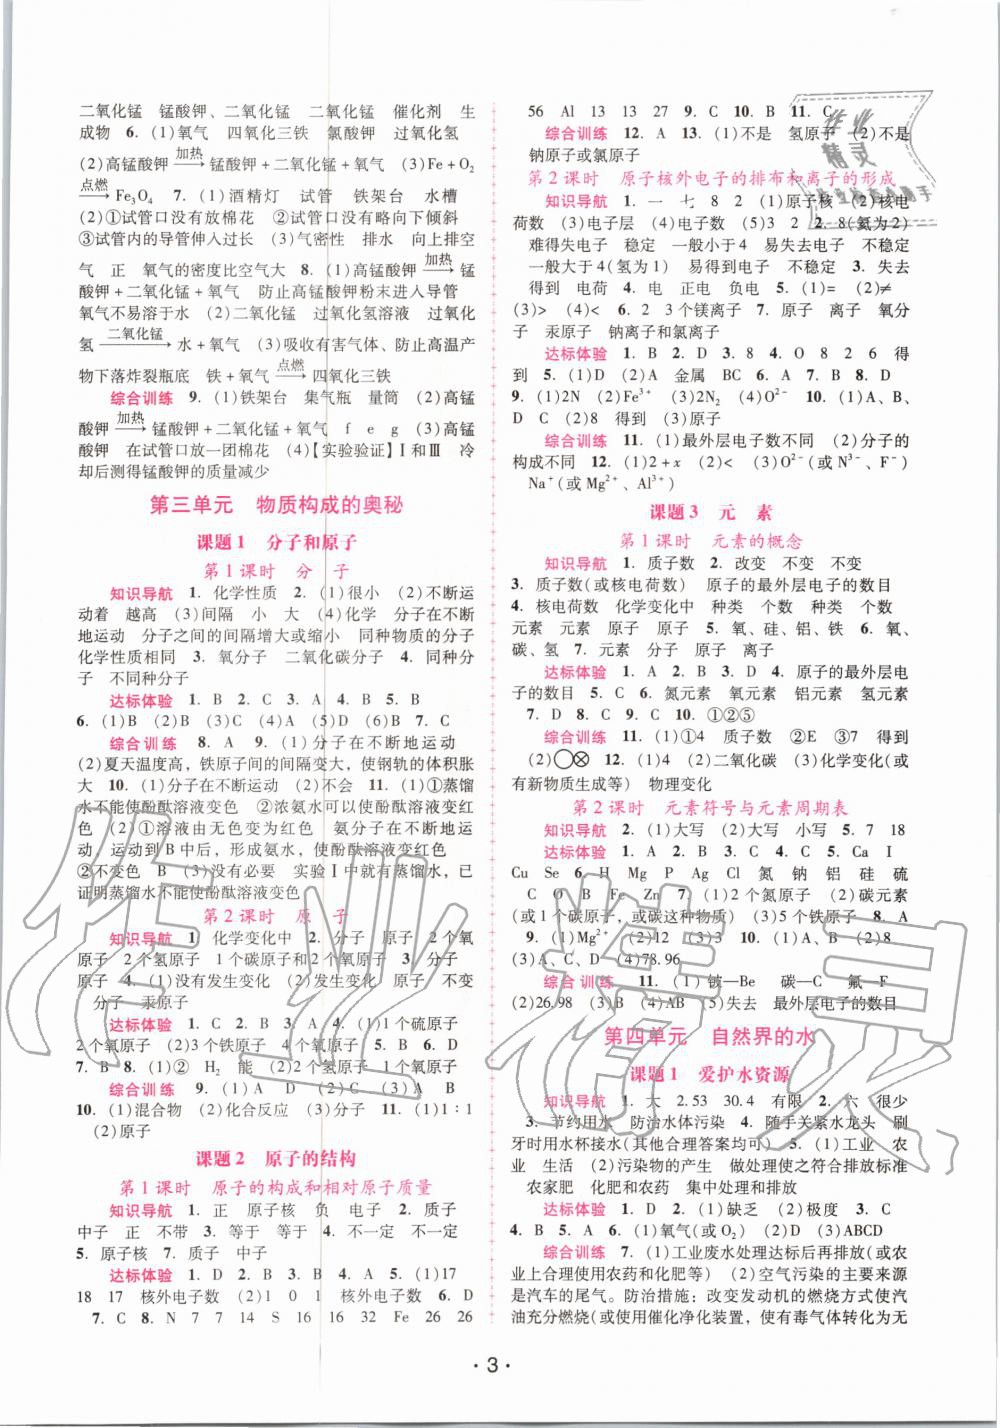 二氧化锰　锰酸钾、二氧化锰　二氧化锰　催化剂　生
成物　6.（1)氧气　四氧化三铁　氯酸钾　过氧化氢
(2)高锰酸钾 加热→ 锰酸钾＋二氧化锰＋氧气　(3)Fe＋O₂
点燃→ Fe₃O₄　7.（1)酒精灯　试管　铁架台　水槽
(2)①试管口没有放棉花　②试管没有略向下倾斜
③试管内的导管伸入过长　(3)气密性　排水　向上排空
气　正　氧气的密度比空气大　8.（1)高锰酸钾 加热→ 锰
酸钾＋二氧化锰＋氧气　防止高锰酸钾粉末进入导管
氧气不易溶于水　(2)二氧化锰　过氧化氢溶液　过氧化
氢 二氧化锰→ 水＋氧气　(3)吸收有害气体、防止高温产
物下落炸裂瓶底　铁＋氧气 点燃→ 四氧化三铁
综合训练　9.（1)铁架台　集气瓶　量筒　(2)高锰
酸钾 加热→ 锰酸钾＋二氧化锰＋氧气　f　e　g　(3)高锰
酸钾　在试管口放一团棉花　(4)【实验验证】Ⅰ和Ⅲ　冷
却后测得锰酸钾的质量减少
第三单元　物质构成的奥秘
课题1　分子和原子
第1课时　分　子
知识导航　1. 化学性质　2.（1)很小　(2)不断运
动着　越高　(3)间隔　小　大　(4)化学　分子在不断
地运动　分子之间的间隔增大或缩小　同种物质的分子
化学性质相同　3. 氧分子　二氧化碳分子　4. 同种分
子　不同种分子
达标体验　1. B　2. C　3. A　4. B　5. B
6.（1)B　(2)B　(3)C　(4)A　(5)D　(6)B　7. C
综合训练　8. A　9.（1)分子在不断地运动
(2)夏天温度高，铁原子间的间隔变大，使钢轨的体积胀
大　10.（1)分子在不断运动　(2)不会　11.（1)①蒸馏
水不能使酚酞溶液变色　②浓氨水可以使酚酞溶液变红
色　(2)①溶液由无色变为红色　氨分子在不断地运
动　运动到B中后，形成氨水，使酚酞溶液变红色
②不变色　B　(3)没有必要　实验Ⅰ中就有蒸馏水，已
证明蒸馏水不能使酚酞溶液变色
第2课时　原　子
知识导航　1. 化学变化中　2. 分子　原子　2个氧
原子　2个氢原子　1个碳原子和2个氧原子　3. 分子
原子　4.（1)没有发生变化　(2)发生变化　原子　不变
分子　汞原子
达标体验　1. C　2. B　3. A　4.（1)1个硫原子
2个氧原子　(2)3个铁原子　4个氧原子　5. B　6. D
7. B　8.（1)②　H₂　能　(2)2个氢原子　1个氧原子
综合训练　9.（1)A　D　(2)C　(3)A　B
10.（1)混合物　(2)化合反应　(3)分子　11.（1)1∶1
(2)原子
课题2　原子的结构
第1课时　原子的构成和相对原子质量
知识导航　1. 正　原子核　负　电子　2. 质子
中子　正　不带　3. 等于　等于　4. 不一定　不一定
5. 原子核　7. 质子　中子
达标体验　1. D　2. B　3. B　4. A　5.（1)17
18　17　核外电子数　(2)1　0　1　核外电子数　6. D
7. C　8. N　7　7　14　S　16　16　32　Fe　26　26
56　Al　13　13　27　9. C　10. B　11. C
综合训练　12. A　13.（1)不是　氢原子　(2)不是
钠原子或氯原子
第2课时　原子核外电子的排布和离子的形成
知识导航　1. 一　七　8　2　(1)原子核　(2)核电
荷数　(3)电子层　(4)电子数　(5)3　2　2　8(氦为2)
难得失电子　稳定　一般小于4　易失去电子　不稳定
一般大于4(氢为1)　易得到电子　不稳定　3. 失去
得到　电荷　4. 电　正电　负电　5.（1)=　(2)≠
(3)>　(4)<　6. 2　3个镁离子　7. 原子　离子　氧分
子　汞原子　钠离子和氯离子
达标体验　1. B　2. D　3. 8　4. O　8　2　6　得
到　5.（1)D　(2)A　金属　BC　6. A　7. B　8. D
9.（1)2N　(2)Fe³⁺　(3)2N₂　(4)O²⁻　10.（1)A、B、
D　C　(2)8　得到　(3)原子
综合训练　11.（1)最外层电子数不同　(2)分子的
构成不同　12.（1)2+x　(2)<　(3)O²⁻(或N³⁻、F⁻)
Na⁺(或Mg²⁺、Al³⁺)
课题3　元　素
第1课时　元素的概念
知识导航　1. 质子数　2. 改变　不变　不变
3. 质子数(或核电荷数)　原子的最外层电子的数目
4. 核电荷数　化学变化中　种类　个数　种类　个数
元素　元素　原子　原子　5. 氧、硅、铝、铁　6. 氧、
碳、氢　7. 元素　分子　原子　离子
达标体验　1. A　2. B　3. D　4. 原子的最外层电
子的数目　5. C　6. 氮元素　氧元素　铝元素　氢元素
7. D　8. C　9. C　10. ①②⑤
综合训练　11.（1)①4　质子数　②E　③7　得到
(2)○⊗　12.（1)4　(2)二氧化碳　(3)化学变化(或
有新物质生成等)　物理变化
第2课时　元素符号与元素周期表
知识导航　2.（1)大写　(2)大写　小写　5. 7　18
达标体验　1. A　2. B　3. C　4. C　5. Ca　I
Cu　Se　6. H　Mg　P　Ag　Cl　氮　钠　铝　硅　硫
C　O　K　Fe　Zn　7.（1)2个氮原子　(2)碳元素
(或1个碳原子，或碳这种物质)　(3)5个铁原子　8. A
9.（1)Mg²⁺　(2)12　(3)2　10.（1)A、B　(2)8
(3)A、C、D　(4)78.96
综合训练　11.（1)铍—Be　碳—C　氟—F
(2)26.98　(3)B　(4)AB　(5)失去　最外层电子的数目
第四单元　自然界的水
课题1　爱护水资源
知识导航　1. 大　2.53　30.4　有限　2. 六　很少
3. 节约用水　防治水体污染　4. 随手关紧水龙头　刷
牙时用水杯接水(其他合理答案均可)　5.（1)工业　农
业　生活　(2)污染物的产生　做处理使之符合排放标准
农家肥　化肥和农药　集中处理和排放
达标体验　1. D　2.（1)缺乏　(2)极度　3. C
4. B　5. A　6.（1)氧气(或O₂)　(2)D　(3)ABCD
综合训练　7.（1)工业废水处理达标后再排放(或农
业上合理使用农药和化肥等)　(2)空气污染的主要来源
是汽车的尾气。防治措施：改变发动机的燃烧方式使汽
油充分燃烧(或使用催化净化装置，使有毒气体转化为无
· 3 ·
作业
精灵
作业精灵